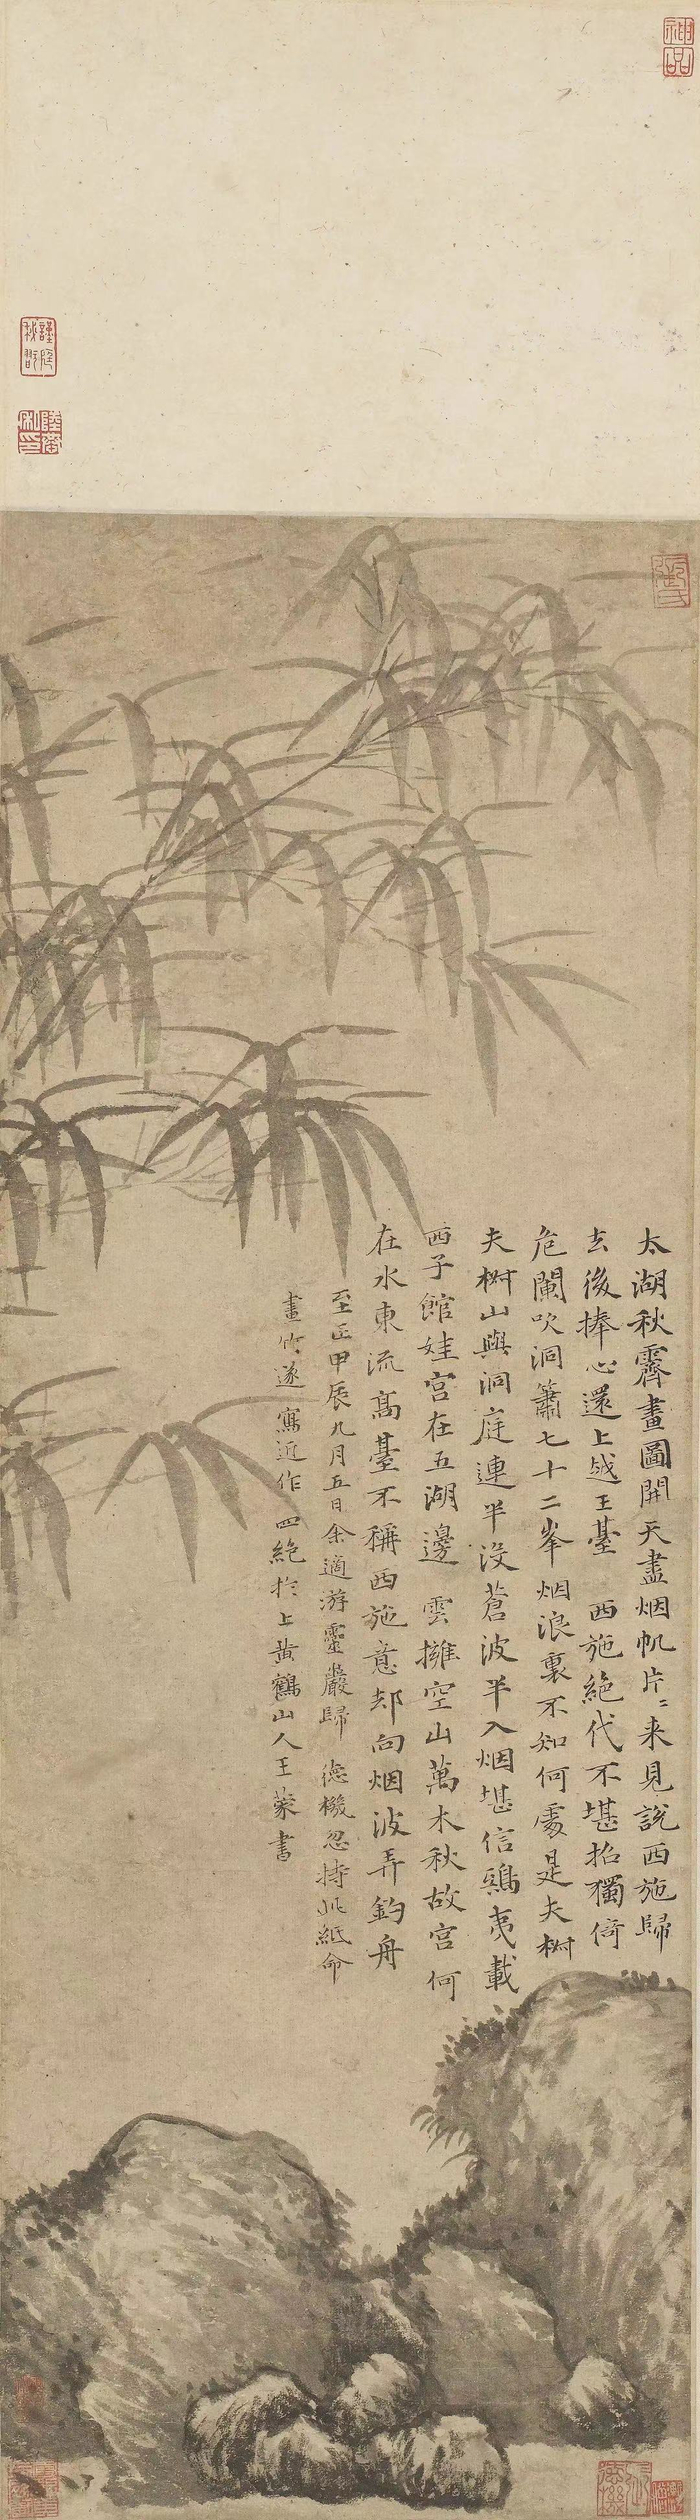 太湖秋霽畫圖開天盡烟帆片〻来見說西施歸
去後捧心還上越王臺 西施絶代不堪招獨倚
危闌吹洞簫七十二峯烟浪裏不知何處是夫椒
夫椒山與洞庭連半没蒼波半入烟堪信鴟夷載
西子館娃宮在五湖邊 雲擁空山萬木秋故宮何
在水東流高臺不稱西施意却向烟波弄釣舟
至正甲辰九月五日余適游靈巖歸 德機忽持此紙命
畫竹遂寫近作四絶於上黄鶴山人王蒙書
神品